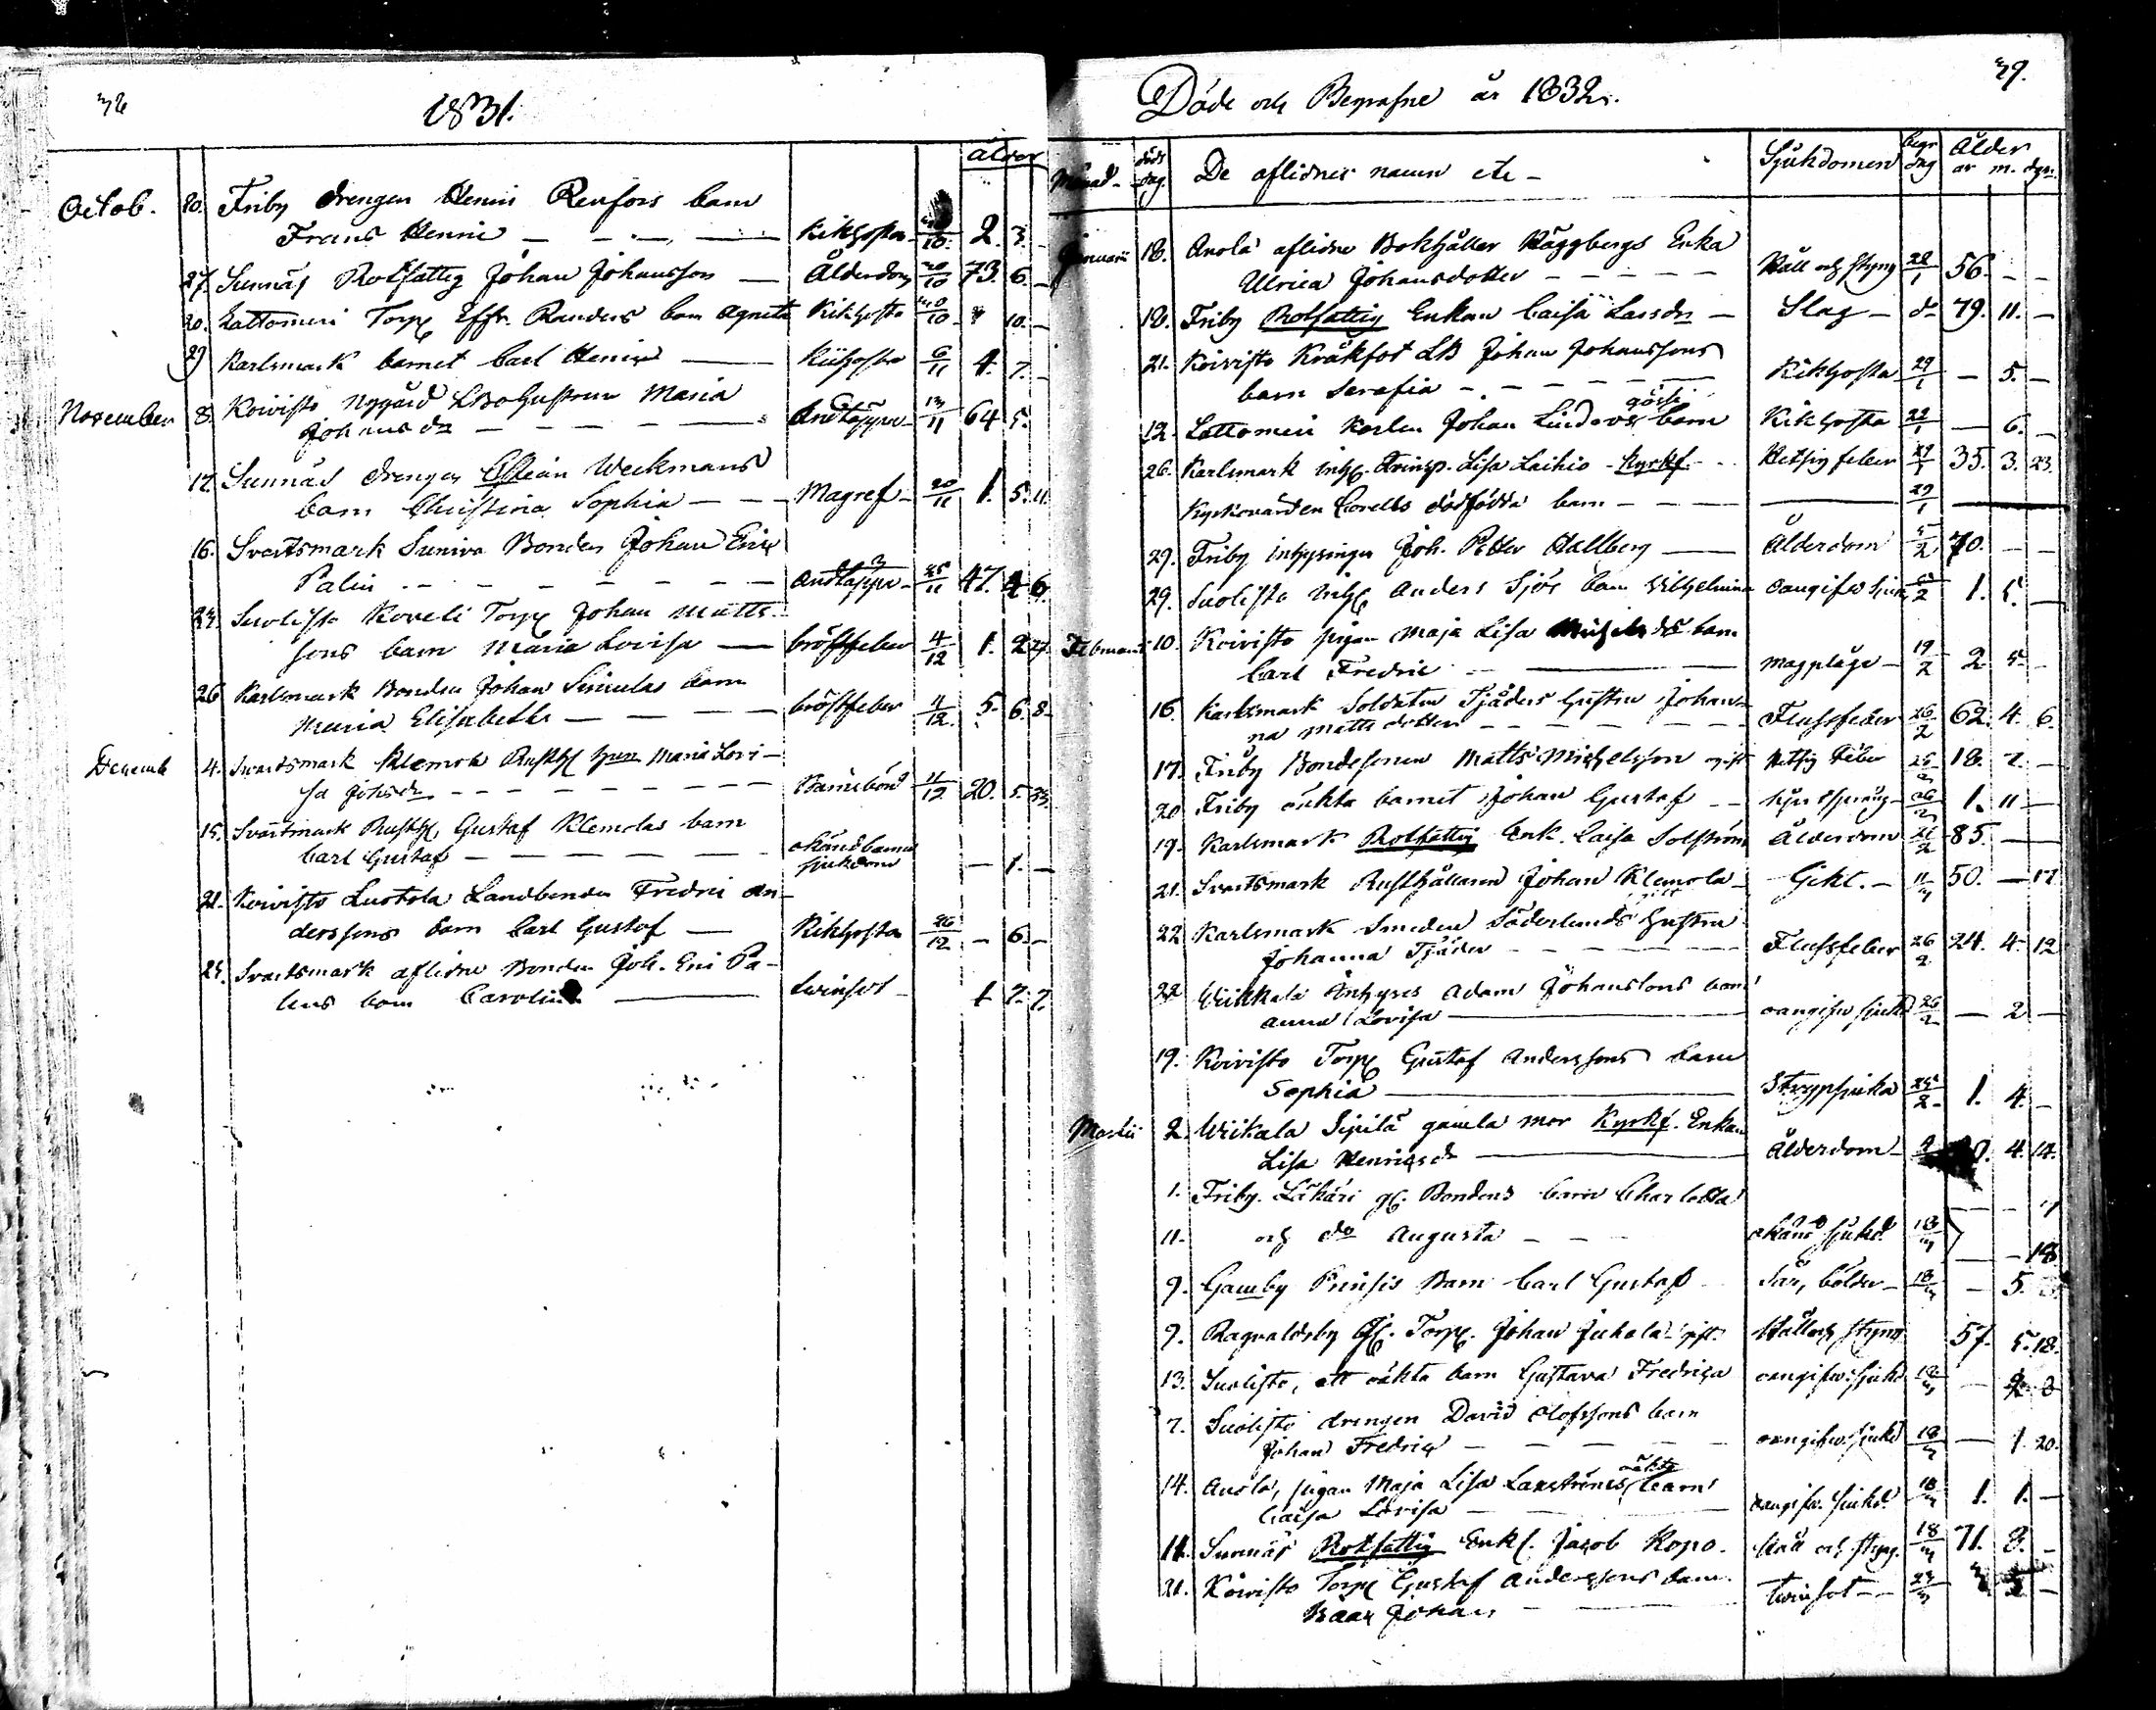 1831.
ålder
Octob. 20. Friby drengen Henric Renfors barn
Frans Henric — — — Kikhosta 10 2. 3. -
27. Sunnäs Rotfattig Johan Johansson — Ålderdom 30/10 73. 6. -
20. Lattomeri Torp Barn Agneta Kikhosta 30/10 10. -
29 Karlsmark barnet Carl Henric — Kikhosta 6/11 4. 7. -
November 8. Koivisto Nygård Hustrun Maria
Johansdr — — — — Andtäppa 13/11 64 5.
12 Sunnäs drengen Weckmans
barn Christina Sophia — — Magref 20/11 1. 5. 11
16. Svartsmark Suniva Bonden Johan Eric
Palin — — — — Andtäppa 25/11 47. 4 6.
24. Suolisto Koveli Torp Johan Matts-
sons barn Maria Lovisa — bröstfeber 4/12 1. 2 27.
26 Karlsmark Bonden Johan barn
Maria Elisabeth — — — bröstfeber 4/12 5. 6. 8
Decemb 4. Svartsmark Klemola Rusth hust Maria Lovi-
sa Johsdr — — — — Barnsbörd 11/12 20. 5.
15. Svartsmark Rusth Gustaf Klemolas barn
Carl Gustaf — — — — okänd barns
sjukdom — 1. —
21. Koivisto Luotola Landbonden Fredric An-
derssons barn Carl Gustaf — Kikhosta 26/12 - 6. -
24. Svartsmark aflidne Bonden Joh. Eric Pa-
lins barn Carolina — twinsot 1 7. 7.
Döde och Begrafne år 1832.
29.
Månad döds dag. De aflidnes namn etc - Sjukdomen begr dag Ålder
år m. dgr.
Januarii 18. Anola aflidne Bokhållar Häggbergs Enka
Ulrica Johansdotter — — — Håll och styng 22/1 56. - -
18. Friby Rotfattig Enkan Caisa Larsdr — Slag — do 79. 11. -
21. Koivisto Kråkfot LB Johan Johanssons
barn Serafia — — — — Kikhosta 29/1 — 5. -
12. Lattomeri Karlen Johan barn Kikhosta 22/1 — 6. -
26. Karlsmark inh. Lisa Laihio - Kyrkf. — Hetsig feber 29/1 35. 3. 23.
Kyrkovärden Corells dödfödda barn — — 29/1
29. Friby inhysingen Joh. Petter Hallberg — Ålderdom 5/2 70. - -
29. Suolisto inh Anders Sjös barn Wilhelmina oangifw sjukd 5/2 1. 5. —
Februarii 10. Koivisto pigan Maja Lisa barn
Carl Fredric — — magplåga — 19/2 2 5 -
16. Karlsmark Soldaten Tjäders hustru Johan-
na Mattsdotter — — — Flussfeber 26/2 62. 4. 6.
17. Friby Bondesonen Matts Michelsson ogift Hetsig feber 18. 7. —
20 Friby oäkta barnet Johan Gustaf — 26/2 1. 11 —
19. Karlsmark Rotfattig Enk. Caisa Solström Ålderdom 26/2 85. —
21. Svartsmark Rusthållaren Johan Klemola — Gikt. — 11/3 50. — 17
22 Karlsmark Smeden Söderlunds hustru
Johanna Tjäder — — — Flussfeber 26/2 24. 4. 12
22 Wiikkala Inhyses Adam Johanssons barn
Anna Lovisa — oangifw sjukd 26/2 — 2 —
19. Koivisto Torp Gustaf Anderssons barn
Sophia — Strypsjuka 25/2 1. 4. -
Martii 2. Wiikala Sipilä gamla mor Kyrkf. Enkan
Lisa Henricsdr — Ålderdom 4. 14.
1. Friby. Läkäri Bondens barn Charlotta
11. och do Augusta — — okänd sjukd. 18/3 — — 18
9. Gamby Prinsis barn Carl Gustaf Sår, bölder 18/3 — 5.
9. Ragvaldsby Torp. Johan Juhola gift Håll och styng 57. 5. 18.
13. Suolisto, ett oäkta barn Gustava Fredrica oangifw. sjukd 18/3 —
7. Suolisto drengen David Olofssons barn
Johan Fredric — — — oangifw. sjukd 18/3 — 1 20.
14. Anola, pigan Maja Lisa Laxströms oäkta barn
Caisa Lovisa — oangifw. sjukd. 18/3 1. 1. —
11. Sunnäs Rotfattig Enkl. Jacob Kopo. Håll och styng. 18/3 71. 8. -
21. Koivisto Torp Gustaf Anderssons barn
Isaac Johan — — twinsot — 25/3